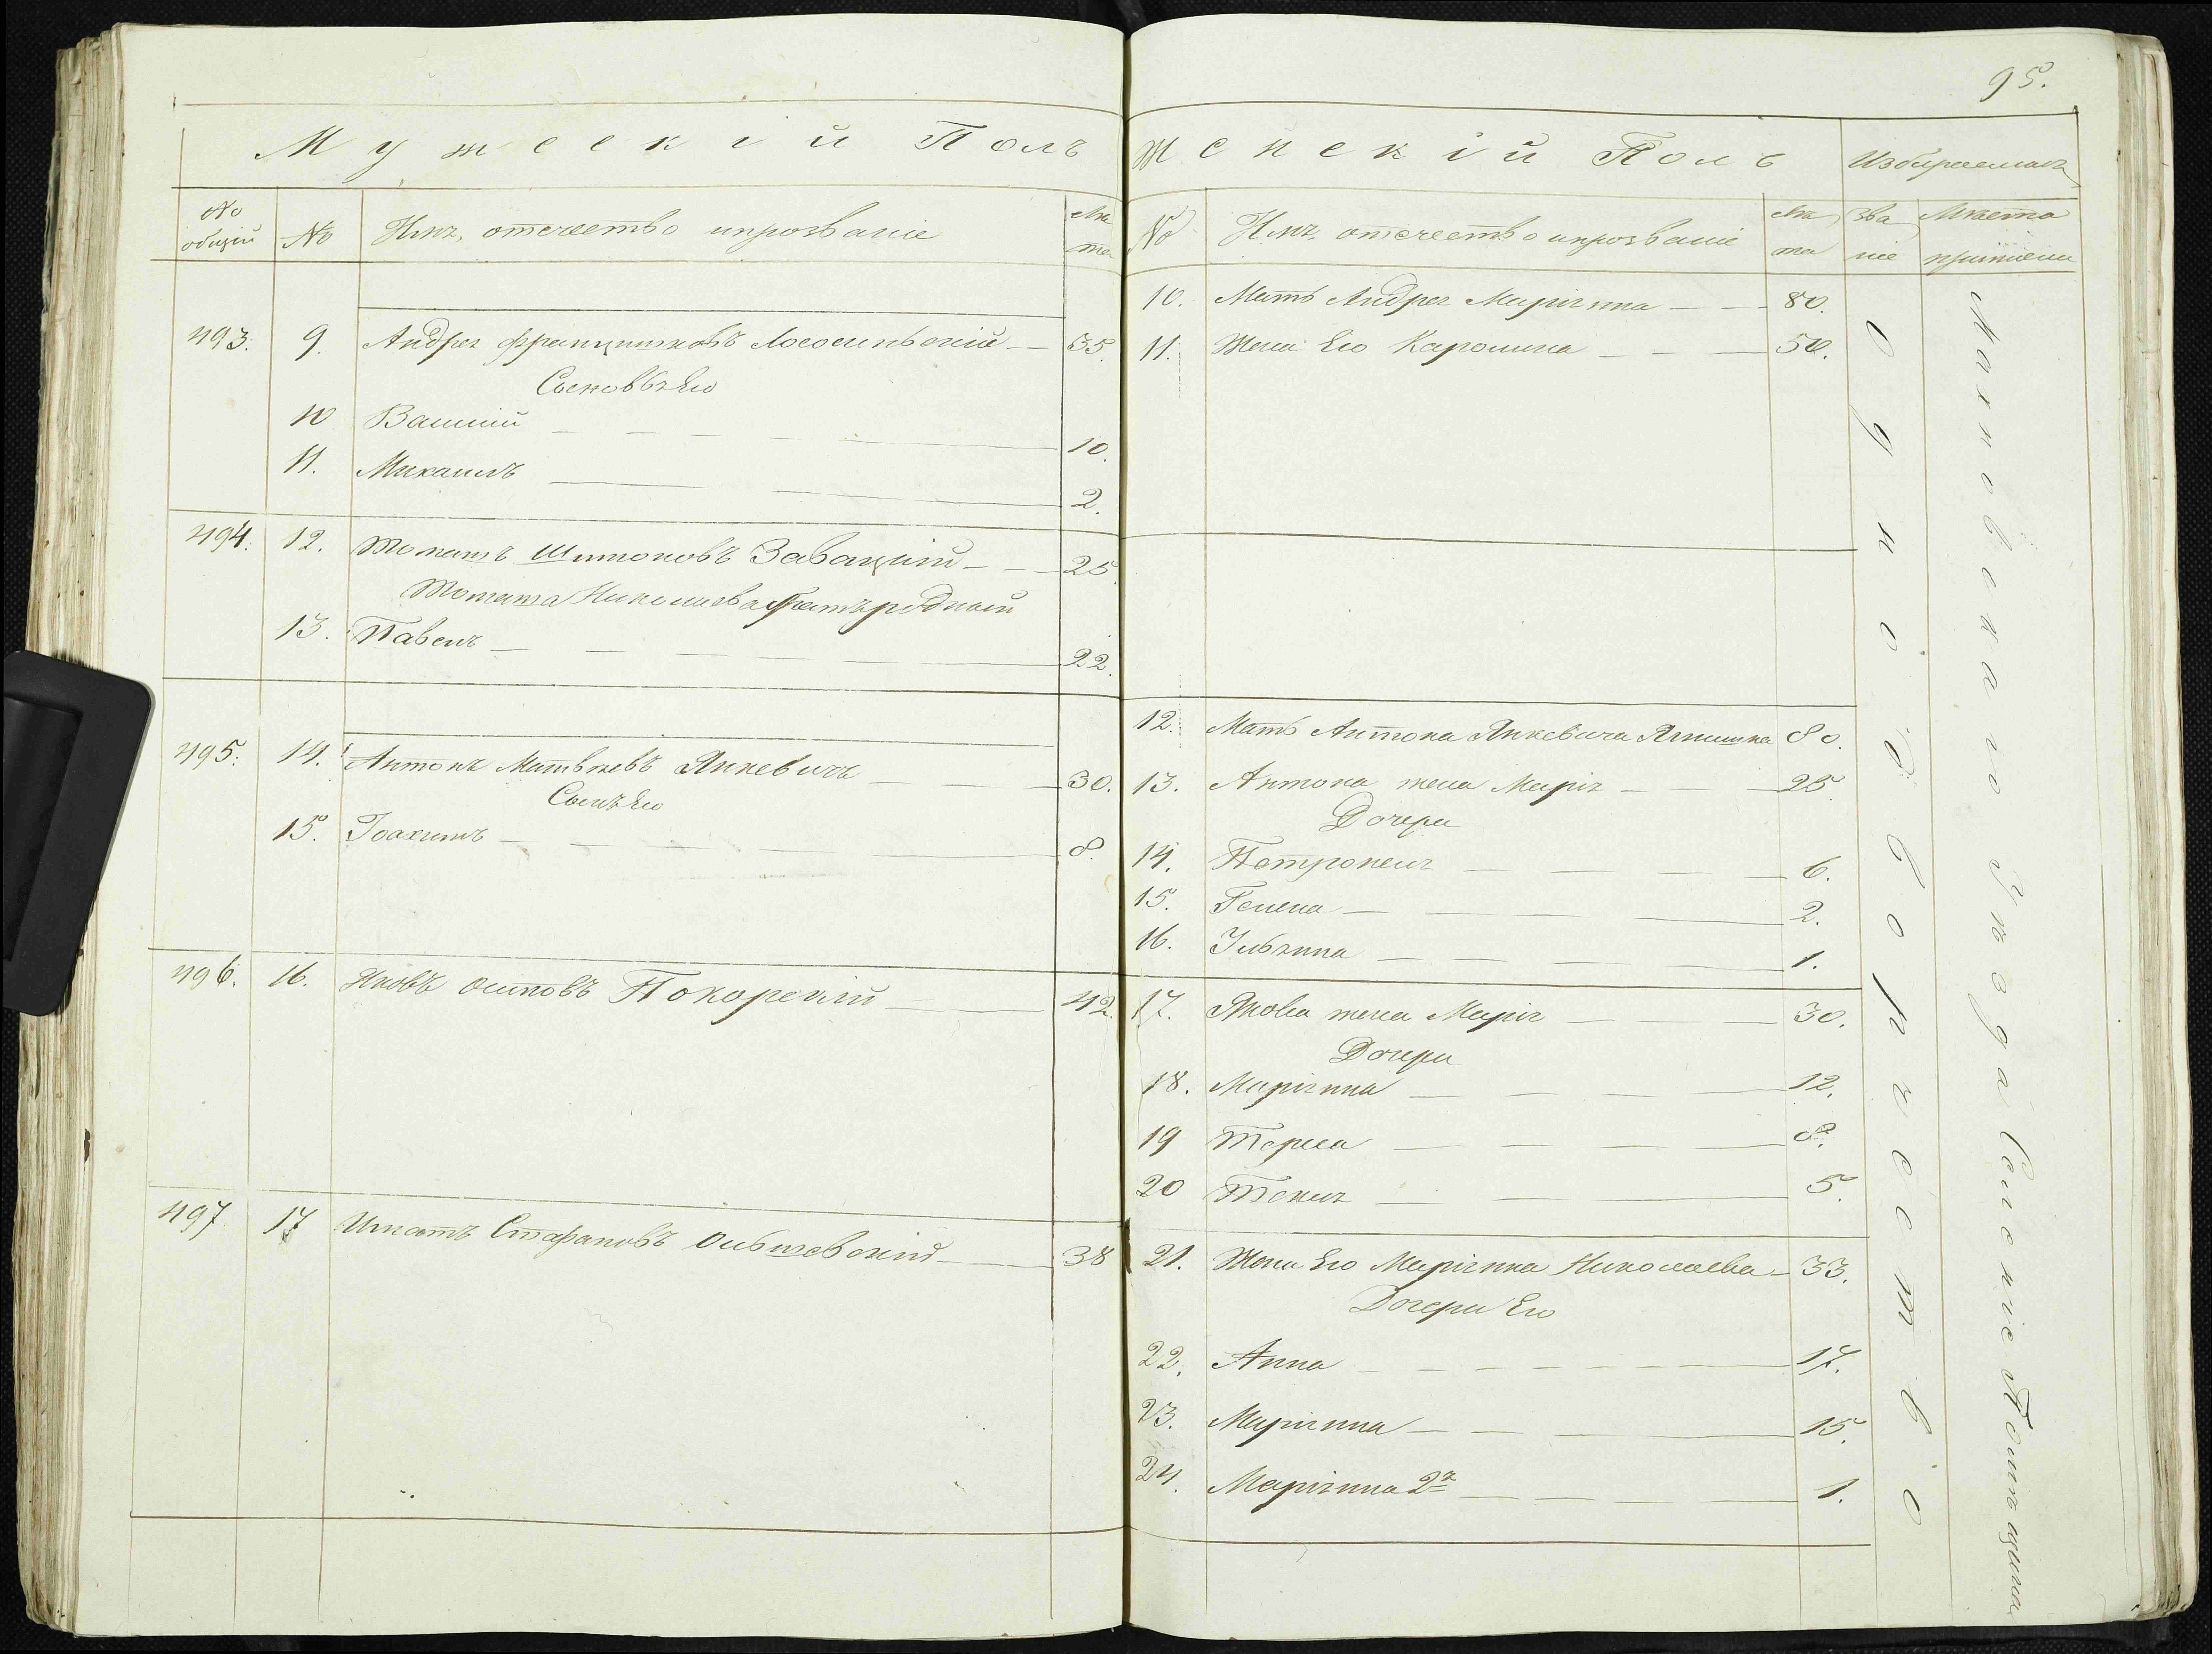 95.
Мужескій Полъ
№ общій
№
Имя, отечество ипрозваніе
Лѣта
493. 9. Андрей Францишковъ Лососиньскій — 55.
Сыновья Его
10 Василій — 10.
11. Михаилъ — 2.
494. 12. Томашъ Шимоновъ Завацкій — 25.
Томаша Николаева братъ родный
13. Павелъ — 22.
495. 14. Антонъ Матвѣевъ Янкевичъ — 30.
Сынъ Его
15. Іоахимъ — 8.
496. 16. Яковъ Осиповъ Покорскій — 42.
497. 17 Игнатъ Стафановъ Ольшевскій — 38
Женскій Полъ
Избираемыя
№
Имя, отечество ипрозваніе
Лѣта
Званіе
Мѣста приписки
10. Мать Андрея Маріянна — 80.
11. Жена Его Каролина — 50.
12. Мать Антона Янкевича Ягнишка 80.
13. Антона жена Марія — 25
Дочери
14. Петронеля — 6.
15. Гелена — 2.
16. Юльянна — 1.
17. Якова жена Марія — 30.
Дочери
18. Маріянна — 12.
19 Тереса — 8.
20 Текля — 5.
21. Жена Его Маріянна Николаева — 33.
Дочери Его
22. Анна — 17.
23. Маріянна — 15.
24. Маріянна 2я — 1.
Однодворчество
Махновскаго Уѣзда Селеніе